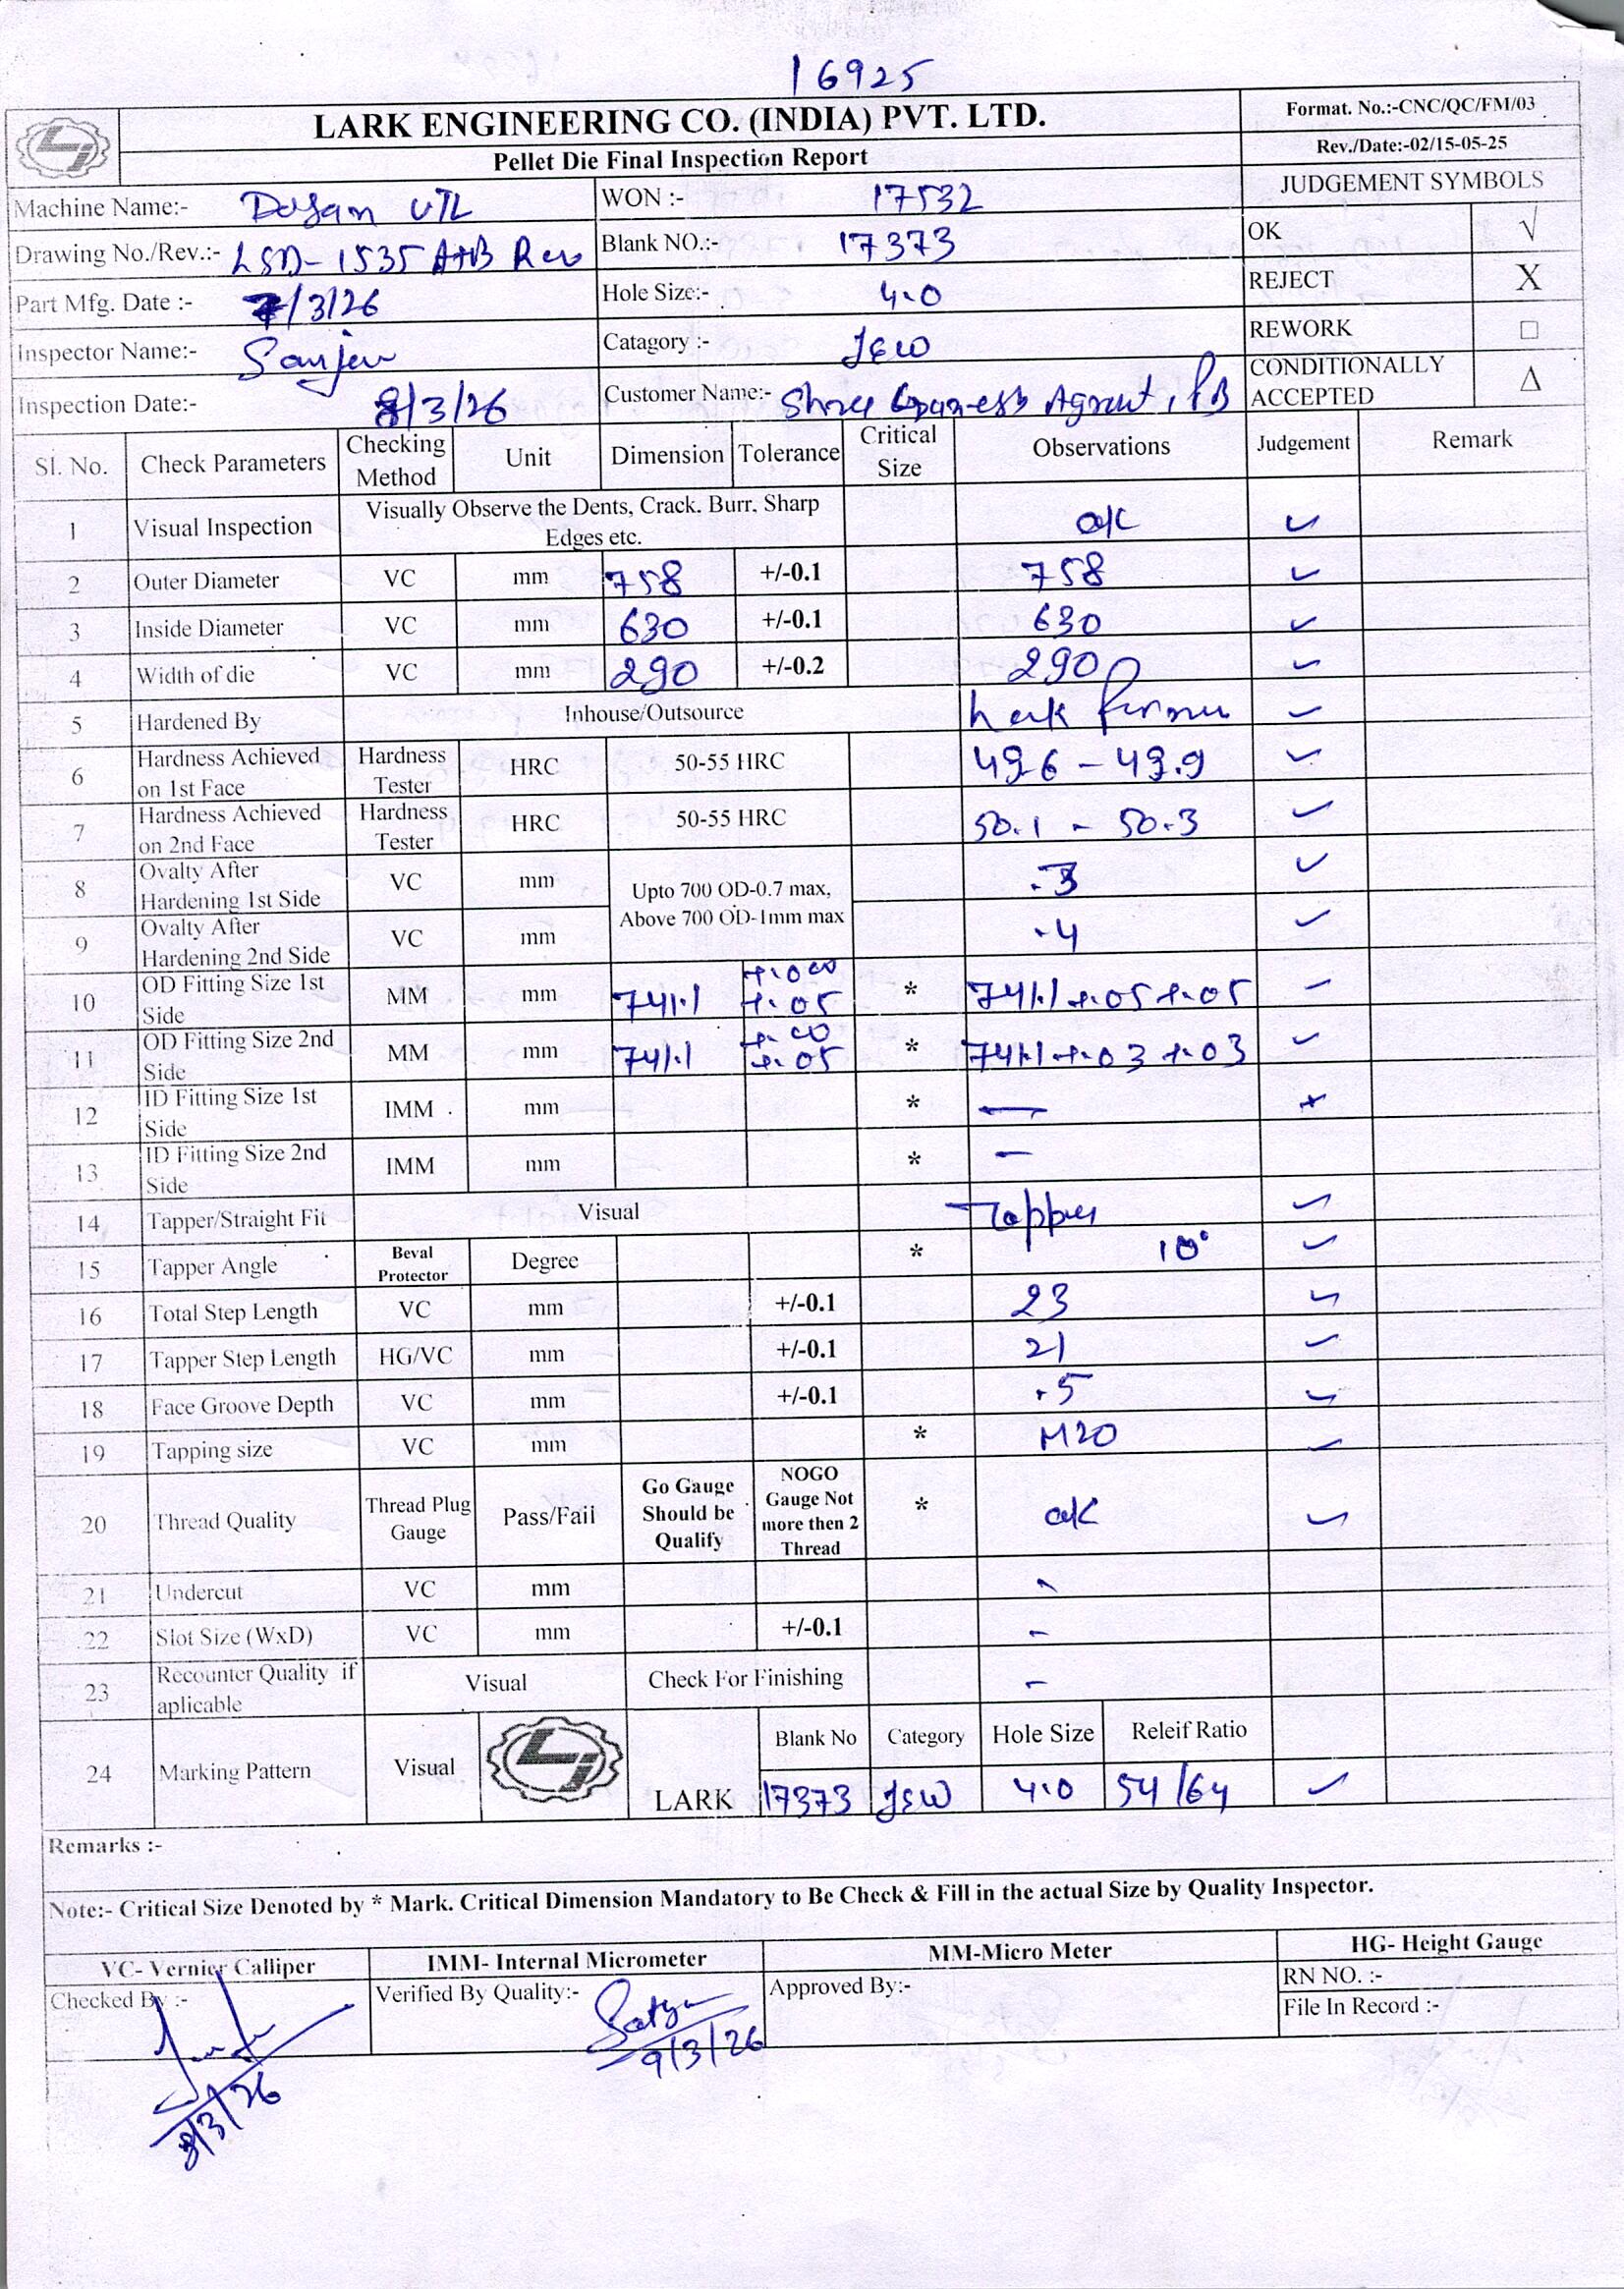 16925
LARK ENGINEERING CO. (INDIA) PVT. LTD.
Format. No.:-CNC/QC/FM/03
Pellet Die Final Inspection Report
Rev./Date:-02/15-05-25
Machine Name:- UTL
WON :- 17532
JUDGEMENT SYMBOLS
Drawing No./Rev.:- LSD-1535 A+B Rev
Blank NO.:- 17373
OK √
Part Mfg. Date :- 7/3/26
Hole Size:- 4.0
REJECT X
Inspector Name:- Sanjeev
Catagory :-
REWORK □
Inspection Date:- 8/3/26
Customer Name:- Shree PB
CONDITIONALLY ACCEPTED Δ
Sl. No. Check Parameters Checking Method Unit Dimension Tolerance Critical Size Observations Judgement Remark
1 Visual Inspection Visually Observe the Dents, Crack, Burr, Sharp Edges etc. ok ✓
2 Outer Diameter VC mm 758 +/-0.1 758 ✓
3 Inside Diameter VC mm 630 +/-0.1 630 ✓
4 Width of die VC mm 290 +/-0.2 290 ✓
5 Hardened By Inhouse/Outsource Lark ✓
6 Hardness Achieved on 1st Face Hardness Tester HRC 50-55 HRC ✓
7 Hardness Achieved on 2nd Face Hardness Tester HRC 50-55 HRC 50.1 - 50.3 ✓
8 Ovalty After Hardening 1st Side VC mm Upto 700 OD-0.7 max, Above 700 OD-1mm max .3 ✓
9 Ovalty After Hardening 2nd Side VC mm .4 ✓
10 OD Fitting Size 1st Side MM mm 741.1 +.000 +.05 * 741.1 +.05 +.05 ✓
11 OD Fitting Size 2nd Side MM mm 741.1 +.00 +.05 * 741.1 +.03 +.03 ✓
12 ID Fitting Size 1st Side IMM mm * — x
13 ID Fitting Size 2nd Side IMM mm * —
14 Tapper/Straight Fit Visual Tapper ✓
15 Tapper Angle Beval Protector Degree * 10° ✓
16 Total Step Length VC mm +/-0.1 23 ✓
17 Tapper Step Length HG/VC mm +/-0.1 21 ✓
18 Face Groove Depth VC mm +/-0.1 .5 ✓
19 Tapping size VC mm * M20 ✓
20 Thread Quality Thread Plug Gauge Pass/Fail Go Gauge Should be Qualify NOGO Gauge Not more then 2 Thread * ok ✓
21 Undercut VC mm -
22 Slot Size (WxD) VC mm +/-0.1 -
23 Recounter Quality if aplicable Visual Check For Finishing -
24 Marking Pattern Visual LARK Blank No Category Hole Size Releif Ratio
17373 4.0 54/64 ✓
Remarks :-
Note:- Critical Size Denoted by * Mark. Critical Dimension Mandatory to Be Check & Fill in the actual Size by Quality Inspector.
VC- Vernier Calliper IMM- Internal Micrometer MM-Micro Meter HG- Height Gauge
Checked By :- Verified By Quality:- Satya Approved By:- RN NO. :-
File In Record :-
9/3/26
8/3/26